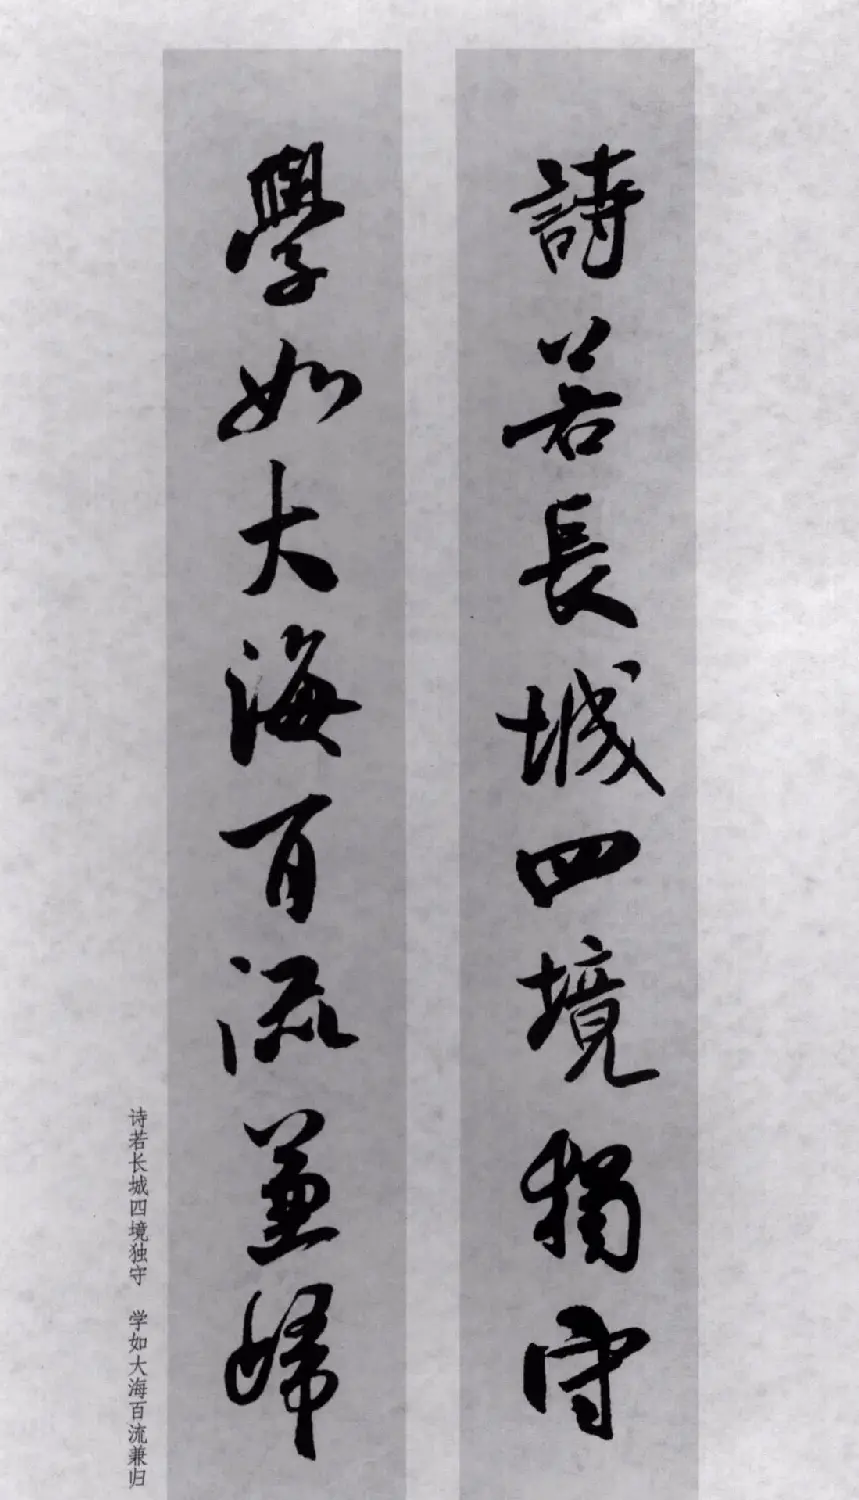 詩若長城四境獨守
學如大海百流兼歸
诗若长城四境独守　学如大海百流兼归